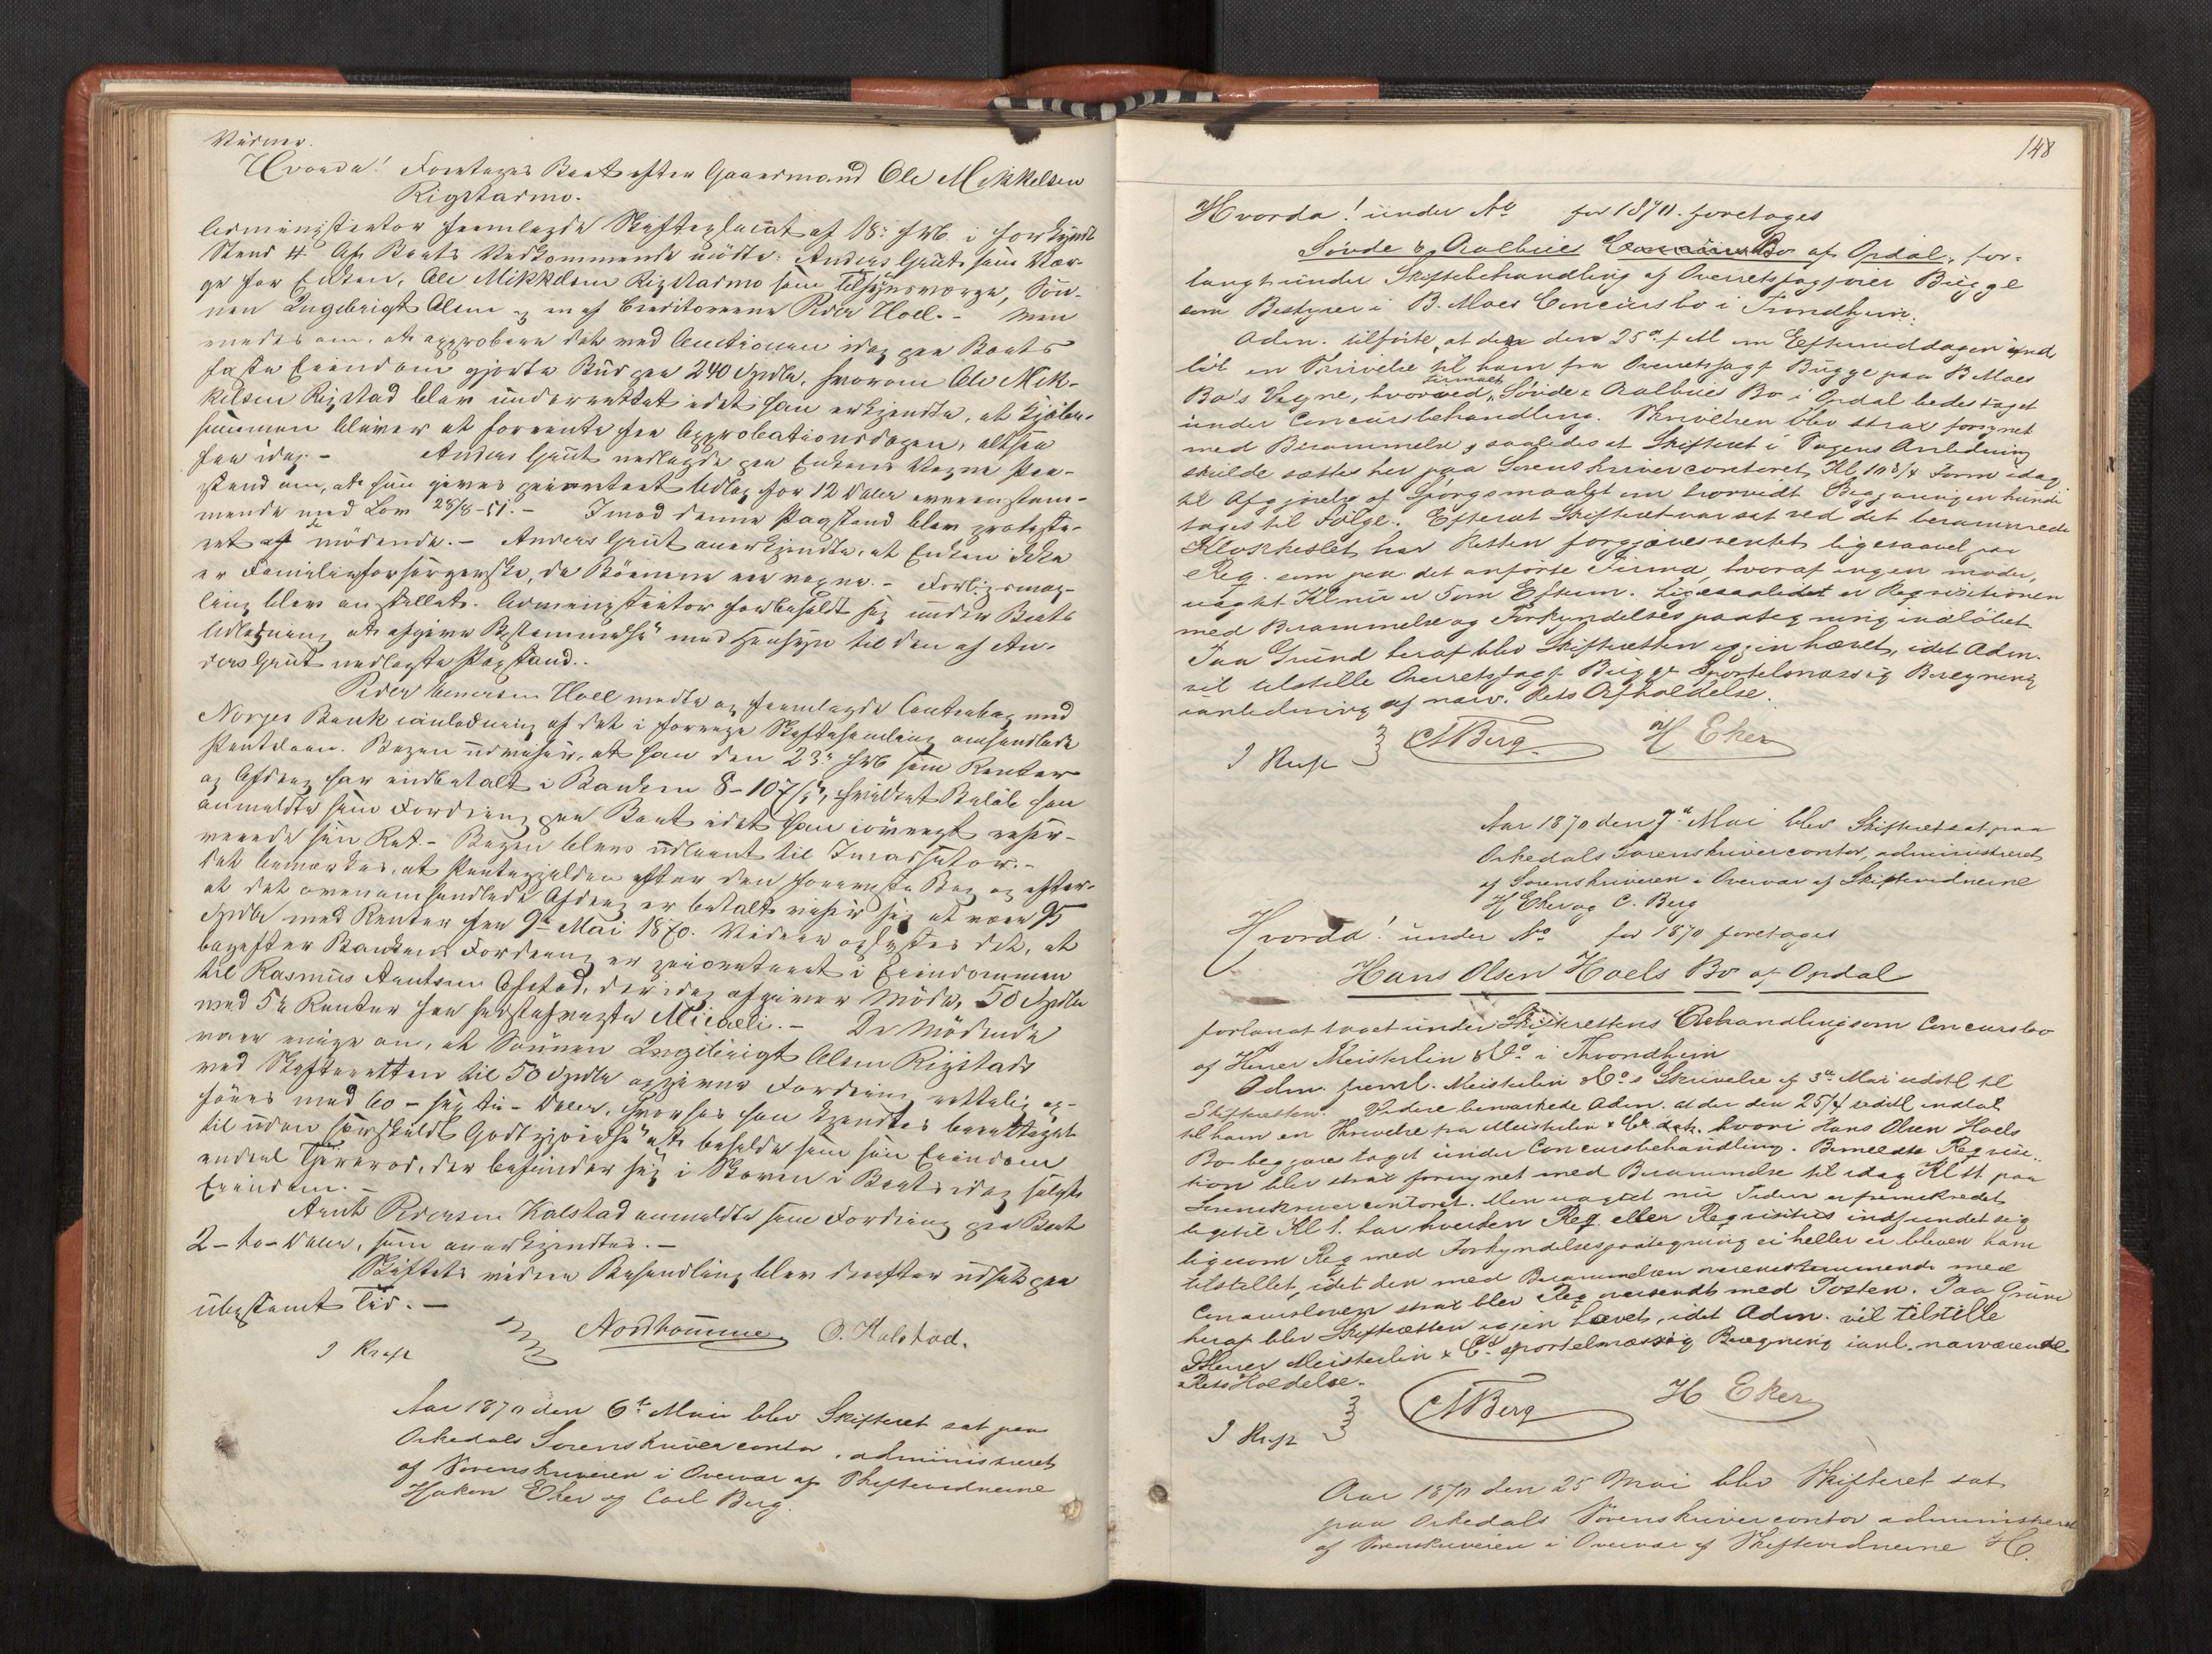 Hvorda! Foretoges Boet efter Gaardmand Ole Mikkelsen
Rigstadmo.
Administrator fremlagde Skifteplacat af 18. Feb. i forkyndt
Stand #. Af Boets Vedkommende mødte: Anders Grut som Vær-
ge for Enken, Ole Mikkelsen Rigstadmo som Tilsynsværge, Søn-
nen Ingebrigt Olsen og en af Creditorerne Peder Hoel. - Man
enedes om, at approbere det ved Auctionen idag paa Boets
faste Eiendom gjorte Bud paa 240 Spdlr, hvorom Ole Mik-
kelsen Rigstad blev underrettet idet han erkjendte, at Kjøbe-
summen bliver at forrente fra Approbationsdagen, altsaa
fra idag. - Anders Grut nedlagde paa Enkens Vegne Paa-
stand om, at hun gives prioriteret Udlæg for 12 Daler overensstem-
mende med Lov 28/8-51. - Imod denne Paastand blev proteste-
ret af de mødende. - Anders Grut anerkjendte, at Enken ikke
er Familieforsørgerske, da Børnene ere voxne. - Forligsmæg-
ling blev anstillet. Administrator forbeholdt sig under Boets
Udlodning at afgive Bestemmelse med Hensyn til den af An-
ders Grut nedlagte Paastand..
Peder Hoel mødte og fremlagde Contrabog med
Norges Bank i anledning af det i forrige Skiftesamling omhandlede
Pantelaan. Bogen udviser, at han den 23. Feb som Renter
og Afdrag har indbetalt i Banken 8-107 ß, hvilket Beløb han
anmeldte som Fordring paa Boet idet han iøvrigt reser-
verede sin Ret. - Bogen blev udlaant til Inkassator. -
Det bemærkes, at Pantegjælden efter den foreviste Bog og efter-
at det ovenomhandlede Afdrag er betalt viser sig at være 95
Spdlr med Renter fra 9de Mai 1870. Videre oplystes det, at
bagefter Bankens Fordring er prioriteret i Eiendommen
til Rasmus Arntsen Afstad, der idag afgiver Møde, 50 Spdlr
med 5% Renter fra sidstafvigte Micaeli. - De Mødende
vare enige om, at Sønnen Ingebrigt Olsen Rigstads
ved Skifteretten til 50 Spdlr opgivne Fordring rettelig op-
føres med 60 - sexti - Daler, hvorhos han kjendtes berettiget
til uden særskildt Godtgjørelse at beholde som sin Eiendom
endeel Tjærerod, der befinder sig i Skoven i Boets idag solgte
Eiendom. -
Arnt Pedersen Kalstad anmeldte som Fordring paa Boet
2 - to - Daler, som anerkjendtes. -
Skiftets videre Behandling blev derefter udsat paa
ubestemt Tid. -
Nordhamme O. Halstad.
Aar 1870 den 6te Mai blev Skifteret sat paa
Orkedals Sorenskrivercontor, administreret
af Sorenskriveren i Overvær af Skiftevidnerne
Haken Eker og Carl Berg.
148
Hvorda! under No for 1870 foretoges
Søvde & Aalbues Bo af Opdal, for-
langt under Skiftebehandling af Overretssagfører Bugge
som Bestyrer i B. Moes Concursbo i Trondhjem.
Adm. tilførte, at der den 25de f. M. om Eftermiddagen ind
løb en Skrivelse til ham fra Overretssagf. Bugge paa B Moes
Bo's Vegne, hvorved firmaet Søvde & Aalbues Bo i Opdal bedes taget
under Concursbehandling. Skrivelsen blev strax forsynet
med Berammelse, saaledes at Skifteret i Sagens Anledning
skulde sættes her paa Sorenskrivercontoret, Kl. 10 3/4 Form. idag
til Afgjørelse af Spørgsmaalet om hvorvidt Begjæringen kunde
tages til Følge. Efterat Skifteret var sat ved det berammede
Klokkeslet har Retten forgjæves ventet ligesaavel paa
Req. som paa det anførte Firma, hvoraf ingen møder,
uagtet Kl. nu er 5 om Efterm. Ligesaalidet er Requisitionen
med Berammelse og Forkyndelsespaategning indløbet.
Paa Grund heraf blev Skifteretten igjen hævet, idet Adm.
vil tilstille Overretssagf. Bugge sportelmæssig Beregning
i anledning af nærv. Rets Afholdelse.
CABerg H Eker
Aar 1870 den 7de Mai blev Skifteret sat paa
Orkedals Sorenskrivercontor, administreret
af Sorenskriveren i Overvær af Skiftevidnerne
H Eker og C. Berg
Hvorda! under No for 1870 foretoges
Hans Olsen Hoels Bo af Opdal
forlangt taget under Skifterettens Behandling som Concursbo
af Herrer Meisterlin & Co i Throndhjem
Adm. freml. Meisterlin & Co's Skrivelse af 3de Mai til
Skifteretten. Videre bemærkede Adm. at der den 25/4 indløb
til ham en Skrivelse fra Meisterlin & Co hvori Hans Olsen Hoels
Bo begjæres taget under Concursbehandling. Bemeldte Requisi-
tion blev strax forsynet med Berammelse til idag Kl 11 paa
Sorenskrivercontoret. Men uagtet nu Tiden er fremskredet
ligetil Kl 1. har hverken Req. eller Requisitus indfundet sig
ligesom Req. med Forkyndelsespaategning ei heller er bleven ham
tilstillet, idet den med Berammelsen overensstemmende med
Concursloven strax blev Req. oversendt med Posten. Paa Grund
heraf blev Skifteretten igjen hævet, idet Adm. vil tilstille
Herrer Meisterlin & Co sportelmæssig Beregning i anl. nærværende
Rets Holdelse.
CABerg H Eker
Aar 1870 den 25 Mai blev Skifteret sat
paa Orkedals Sorenskrivercontor administreret
af Sorenskriveren i Overvær af Skiftevidnerne H.